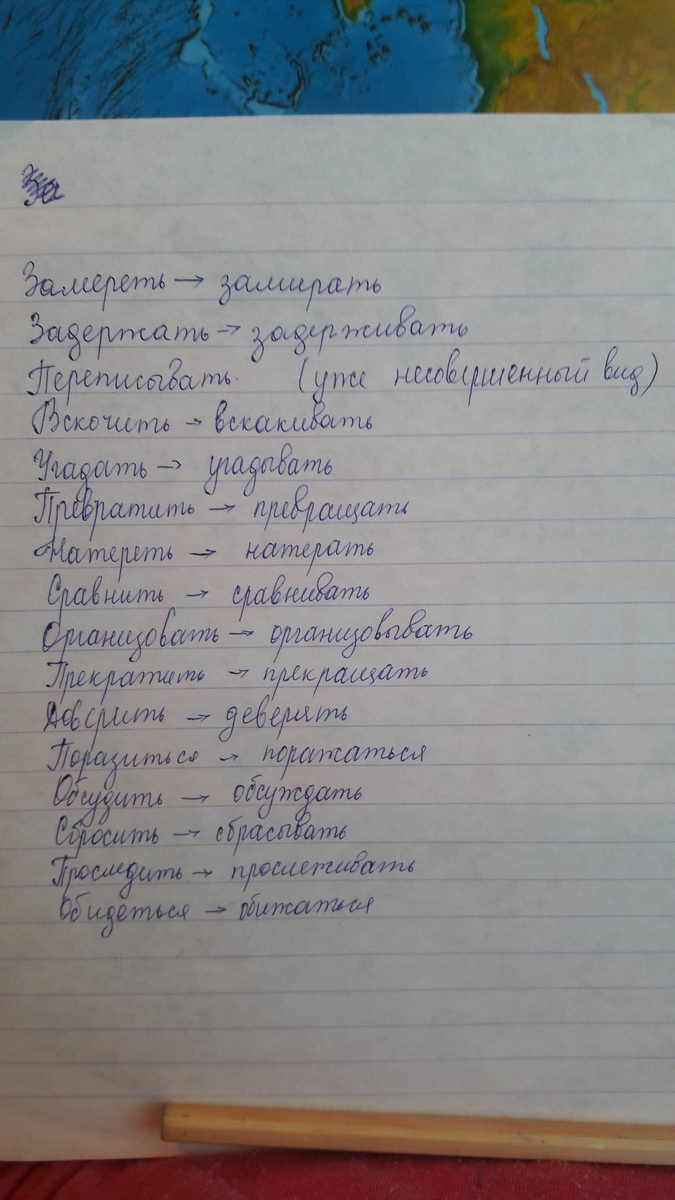 За
Замереть → замирать
Задержать → задерживать
Переписывать. (уже несовершенный вид)
Вскочить → вскакивать
Угадать → угадывать
Превратить → превращать
Натереть → натерать
Сравнить → сравнивать
Организовать → организовывать
Прекратить → прекращать
Доверить → деверять
Поразиться → поражаться
Обсудить → обсуждать
Сбросить → сбрасывать
Проследить → прослеживать
Обидеться → обижаться